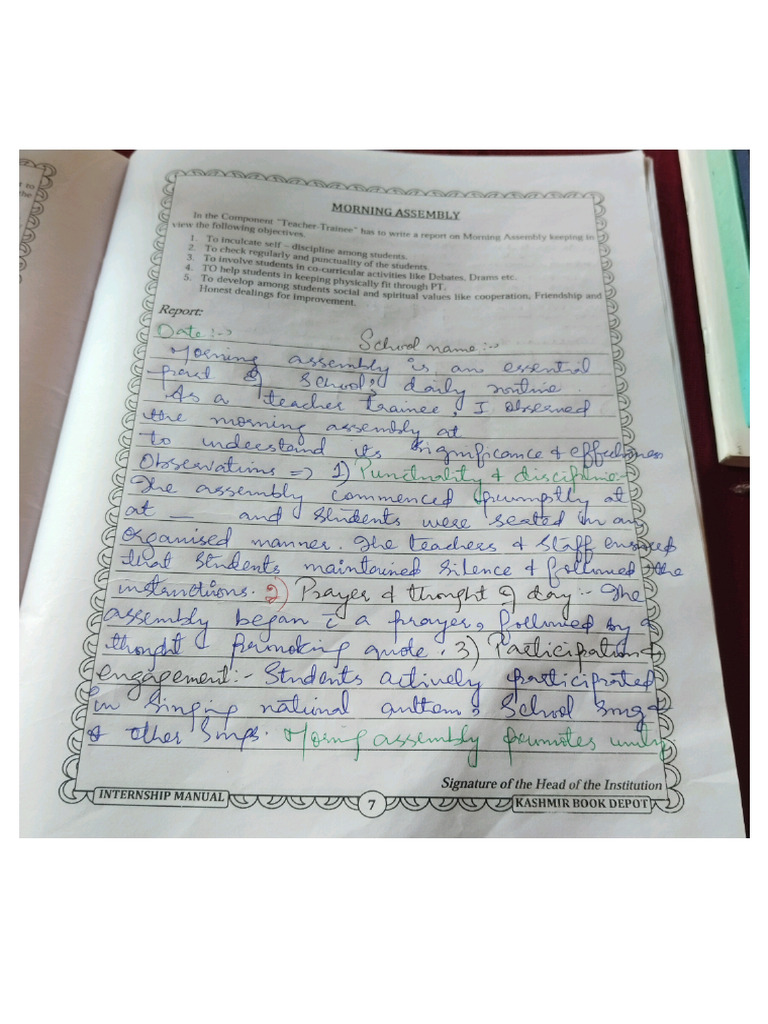 MORNING ASSEMBLY
In the Component "Teacher-Trainee" has to write a report on Morning Assembly keeping in
view the following objectives.
1. To inculcate self – discipline among students.
2. To check regularly and punctuality of the students.
3. To involve students in co-curricular activities like Debates, Drams etc.
4. TO help students in keeping physically fit through PT.
5. To develop among students social and spiritual values like cooperation, Friendship and
Honest dealings for improvement.
Report:
Date :->
School name :-
Morning assembly is an essential
part of School's daily routine.
As a teacher trainee, I observed
the morning assembly at
to understand its significance & effectiveness
Observations => 1) Punctuality & discipline-
The assembly commenced promptly at
at — and students were seated in an
organised manner. The teachers & staff ensured
that students maintained silence & followed the
instructions. 2) Prayer & thought of day :- The
assembly began c a prayer, followed by a
thought - provoking quote. 3) Participation &
engagement :- Students actively participated
in singing national anthem, School song &
& other songs. Morning assembly promotes unity
Signature of the Head of the Institution
INTERNSHIP MANUAL
7
KASHMIR BOOK DEPOT